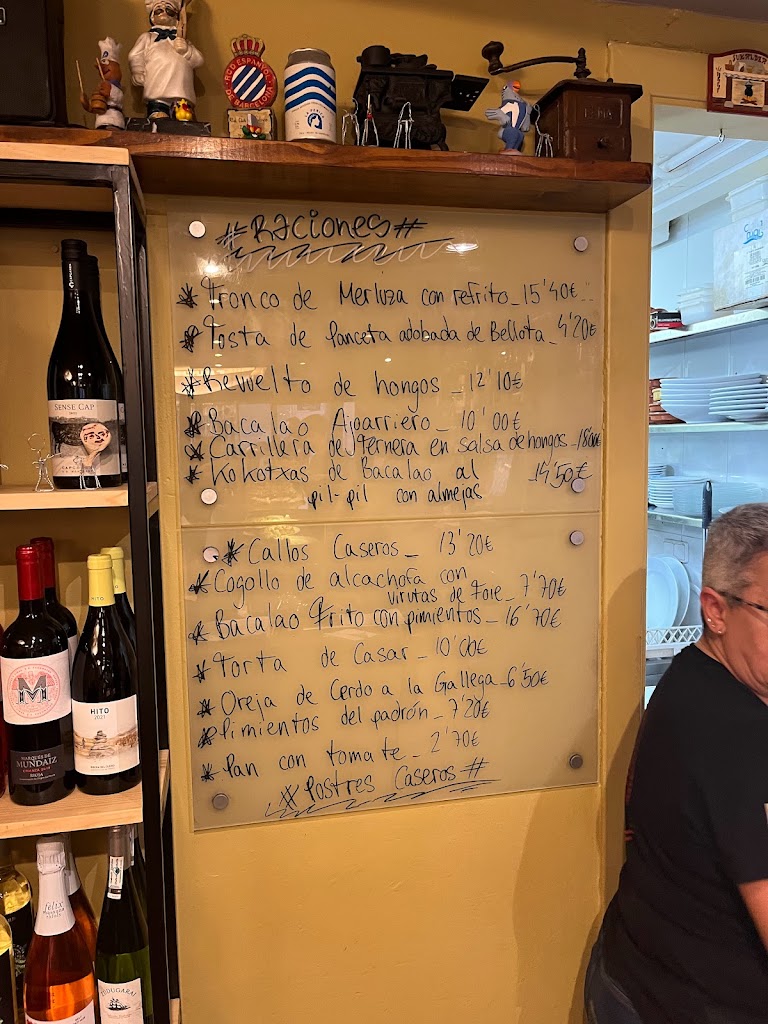 RCD ESPANYOL
DE BARCELONA
#RACIONES#
* Tronco de Merluza con refrito_15'40€
* Tosta de Panceta adobada de Bellota_4'20€
* Revuelto de hongos _ 12'10€
* Bacalao Ajoarriero_ 10'00€
* Carrillera de ternera en salsa de hongos_18'00€
* Kokotxas de Bacalao al 14'50€
pil-pil con almejas
* Callos Caseros_ 13'20€
* Cogollo de alcachofa con
virutas de Foie_ 7'70€
* Bacalao Frito con pimientos_ 16'70€
* Torta de Casar_ 10'00€
* Oreja de Cerdo a la Gallega_6'50€
* Pimientos del padrón_ 7'20€
* Pan con tomate_ 2'70€
# Postres Caseros #
SENSE CAP
M
MARQUÉS DE
MUNDAIZ
RIOJA
HITO
HITO
2021
felix